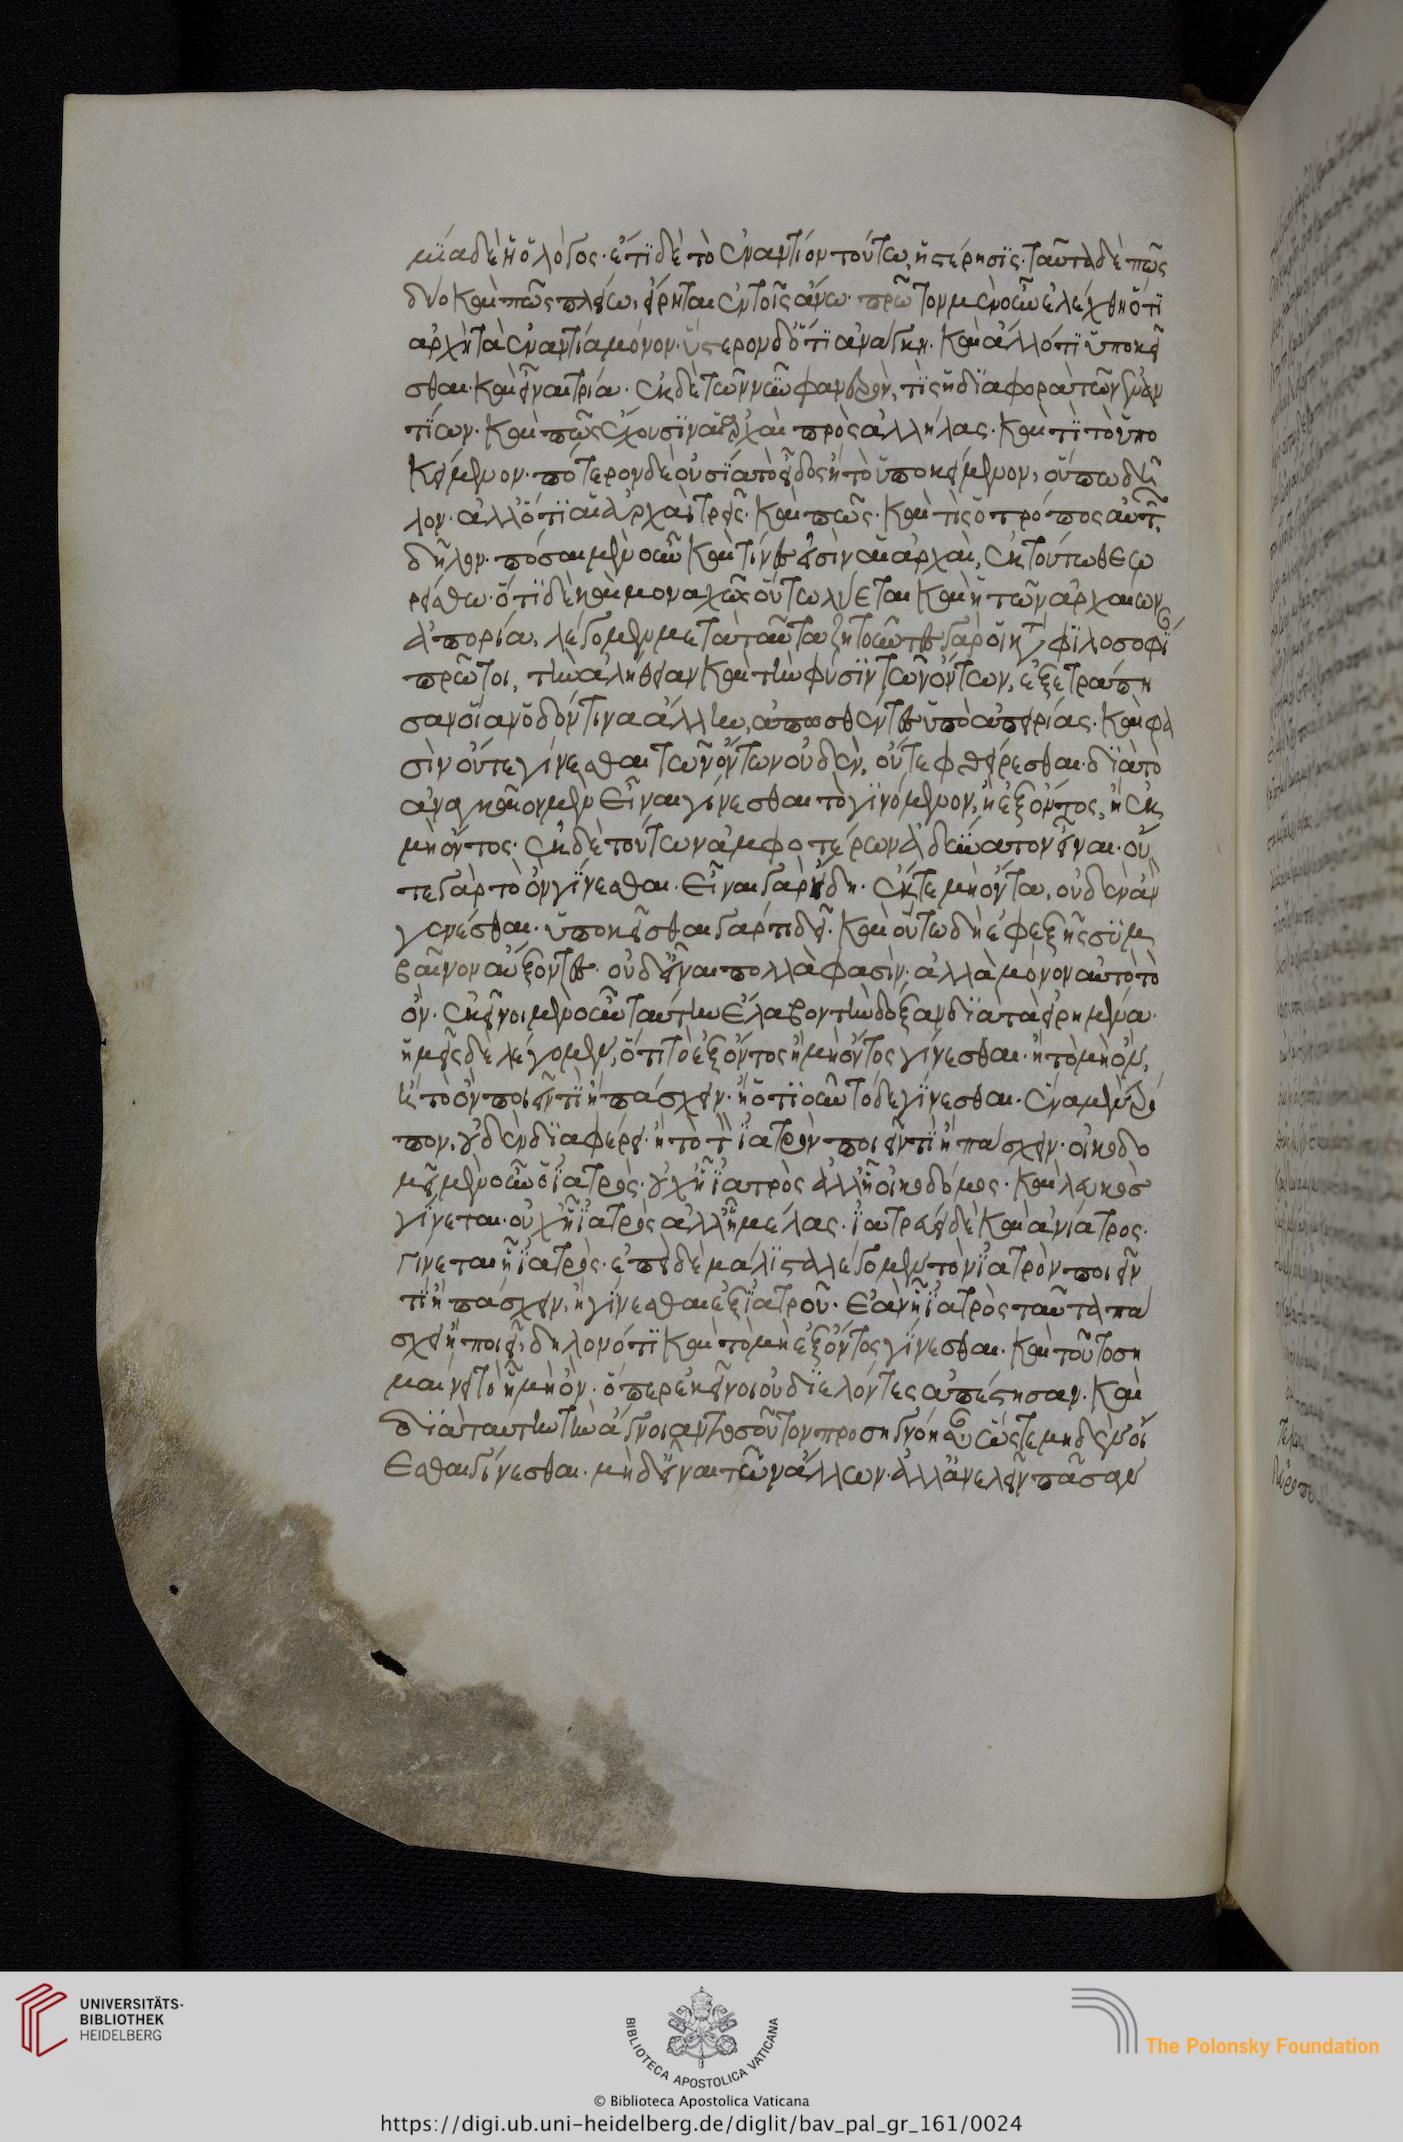 μία δὲ ἡ ὁ λόγος· ἔτι δὲ τὸ ἐναντίον τούτω, ἡ στέρησις· ταῦτα δὲ πῶς
δύο καὶ πῶς πλείω, εἴρηται ἐν τοῖς ἄνω· πρῶτον μὲν οὖν ἐλέχθη ὅτι
ἀρχὴ τὰ ἐναντία μόνον· ὕστερον δ' ὅτι ἀνάγκη· καὶ ἄλλό τι ὑποκεῖ
σθαι· καὶ εἶναι τρία· ἐκ δὲ τῶν νῦν φανερὸν, τίς ἡ διαφορὰ τῶν ἐναν
τίων· καὶ πῶς ἔχουσιν αἱ ἀρχαὶ πρὸς ἀλλήλας· καὶ τί τὸ ὑπο
κείμενον· πότερον δὲ οὐσία τὸ εἶδος ἢ τὸ ὑποκείμενον, οὔπω δῆ
λον· ἀλλ' ὅτι αἱ ἀρχαὶ τρεῖς· καὶ πῶς· καὶ τίς ὁ τρόπος αὐτῶν,
δῆλον· πόσαι μὲν οὖν καὶ τίνες εἰσὶν αἱ ἀρχαὶ, ἐκ τούτων θεω
ρείσθω· ὅτι δὲ καὶ μοναχῶς οὕτω λύεται καὶ ἡ τῶν ἀρχαίων
ἀπορία, λέγομεν μετὰ ταῦτα· ζητοῦντες γὰρ οἱ κατὰ φιλοσοφί
πρῶτοι, τὴν ἀλήθειαν καὶ τὴν φύσιν τῶν ὄντων, ἐξετράπη
σαν οἷαν ὁδόν τινα ἄλλην, ἀπωσθέντες ὑπὸ ἀπειρίας· καὶ φα
σὶν οὔτε γίνεσθαι τῶν ὄντων οὐδὲν, οὔτε φθείρεσθαι· διὰ τὸ
ἀναγκαῖον μὲν εἶναι γίνεσθαι τὸ γινόμενον, ἢ ἐξ ὄντος, ἢ ἐκ
μὴ ὄντος· ἐκ δὲ τούτων ἀμφοτέρων ἀδύνατον εἶναι· οὔ
τε γὰρ τὸ ὂν γίνεσθαι· εἶναι γὰρ ἤδη· ἔκ τε μὴ ὄντος, οὐδὲν ἂν
γενέσθαι· ὑποκεῖσθαι γάρ τι δεῖ· καὶ οὕτω δὴ ἐφεξῆς συμ
βαῖνον αὔξοντες· οὐδ' εἶναι πολλὰ φασὶν· ἀλλὰ μόνον αὐτὸ τὸ
ὄν· ἐκεῖνοι μὲν οὖν ταύτην ἔλαβον τὴν δόξαν διὰ τὰ εἰρημένα·
ἡμεῖς δὲ λέγομεν, ὅτι τὸ ἐξ ὄντος ἢ μὴ ὄντος γίνεσθαι· ἢ τὸ μὴ ὂν,
ἢ τὸ ὂν ποιεῖν τὶ ἢ πάσχειν· ἢ ὁτιοῦν τόδε γίνεσθαι· ἕνα μὲν τρό
πον, οὐδὲν διαφέρει· ἢ τὸ τὸν ἰατρὸν ποιεῖν τὶ ἢ πάσχειν· οἰκοδο
μεῖ μὲν οὖν ὁ ἰατρὸς· οὐχ ἧ ἰατρὸς ἀλλ' ἧ οἰκοδόμος· καὶ λευκὸς
γίνεται· οὐχ ἧ ἰατρὸς ἀλλ' ἧ μέλας· ἰατρεύει δὲ καὶ ἀνίατρος·
γίνεται ἧ ἰατρὸς· ἐπεὶ δὲ μάλιστα λέγομεν τὸν ἰατρὸν ποιεῖν
τὶ ἢ πάσχειν, ἢ γίνεσθαι ἐξ ἰατροῦ· ἐὰν ἧ ἰατρὸς ταῦτα πά
σχει ἢ ποιεῖ, δηλονότι καὶ τὸ μὴ ἐξ ὄντος γίνεσθαι· καὶ τοῦτο ση
μαίνει τὸ ἧ μὴ ὄν· ὅπερ ἐκεῖνοι οὐ διελόντες ἀπέστησαν· καὶ
διὰ ταύτην τὴν ἄγνοιαν τοσοῦτον προσηγνόησαν ὥστε μηδὲν οἴ
εσθαι γίνεσθαι· μὴδ' εἶναι τῶν ἄλλων· ἀλλ' ἀνελεῖν πᾶσαν
UNIVERSITÄTS-
BIBLIOTHEK
HEIDELBERG
BIBLIOTECA APOSTOLICA VATICANA
The Polonsky Foundation
© Biblioteca Apostolica Vaticana
https://digi.ub.uni-heidelberg.de/diglit/bav_pal_gr_161/0024